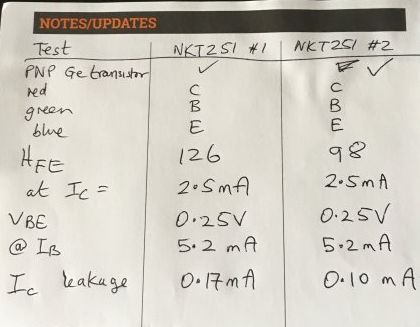 NOTES/UPDATES
Test NKT251 #1 NKT251 #2
PNP Ge transistor ✓ ✓
red C C
green B B
blue E E
HFE 126 98
at Ic = 2.5mA 2.5mA
VBE 0.25V 0.25V
@ IB 5.2 mA 5.2mA
Ic leakage 0.17mA 0.10 mA